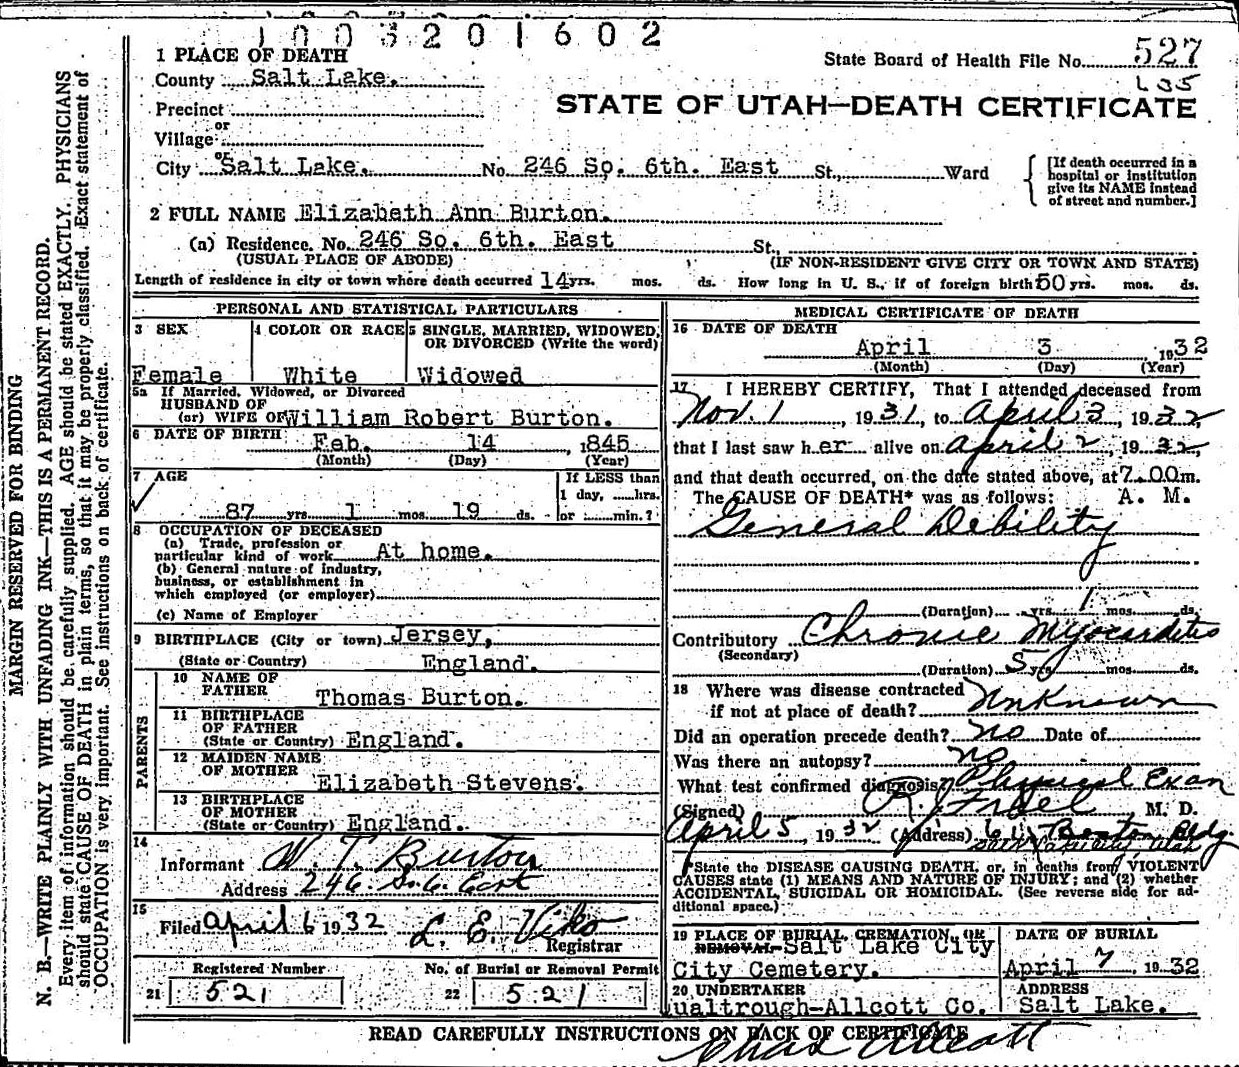 1003201602
1 PLACE OF DEATH
State Board of Health File No. 527
County Salt Lake.
STATE OF UTAH—DEATH CERTIFICATE
Precinct
or
Village
or
City Salt Lake. No. 246 So. 6th. East St., Ward
[If death occurred in a
hospital or institution
give its NAME instead
of street and number.]
2 FULL NAME Elizabeth Ann Burton.
(a) Residence. No. 246 So. 6th. East St.
(USUAL PLACE OF ABODE) (IF NON-RESIDENT GIVE CITY OR TOWN AND STATE)
Length of residence in city or town where death occurred 14 yrs. mos. ds. How long in U. S., if of foreign birth 50 yrs. mos. ds.
PERSONAL AND STATISTICAL PARTICULARS
3 SEX 4 COLOR OR RACE 5 SINGLE, MARRIED, WIDOWED,
OR DIVORCED (Write the word)
Female White Widowed
5a If Married, Widowed, or Divorced
HUSBAND OF
(or) WIFE OF William Robert Burton.
6 DATE OF BIRTH Feb. 14, 1845
(Month) (Day) (Year)
7 AGE If LESS than
1 day, ......hrs.
87 yrs. 1 mos. 19 ds. or ......min.?
8 OCCUPATION OF DECEASED
(a) Trade, profession or
particular kind of work At home.
(b) General nature of industry,
business, or establishment in
which employed (or employer)
(c) Name of Employer
9 BIRTHPLACE (City or town) Jersey,
(State or Country) England.
PARENTS
10 NAME OF
FATHER Thomas Burton.
11 BIRTHPLACE
OF FATHER
(State or Country) England.
12 MAIDEN NAME
OF MOTHER Elizabeth Stevens.
13 BIRTHPLACE
OF MOTHER
(State or Country) England.
14
Informant W. T. Burton
Address 246. So. 6. East
15
Filed April 6 1932 L. E. Viko
Registrar
Registered Number No. of Burial or Removal Permit
21 521 22 521
MEDICAL CERTIFICATE OF DEATH
16 DATE OF DEATH
April 3 1932
(Month) (Day) (Year)
17 I HEREBY CERTIFY, That I attended deceased from
Nov. 1, 1931, to April 3 1932,
that I last saw her alive on April 2, 1932,
and that death occurred, on the date stated above, at 7.00m.
The CAUSE OF DEATH* was as follows: A. M.
General Debility
(Duration) yrs. 1 mos. ds.
Contributory Chronic Myocarditis
(Secondary)
(Duration) 5 yrs. mos. ds.
18 Where was disease contracted
if not at place of death? Unknown
Did an operation precede death? no Date of
Was there an autopsy? no
What test confirmed diagnosis? Physical Exam
(Signed) R. J. M. D.
April 5, 1932 (Address) Boston Bldg.
Salt Lake City, Utah
*State the DISEASE CAUSING DEATH, or, in deaths from VIOLENT
CAUSES state (1) MEANS AND NATURE OF INJURY; and (2) whether
ACCIDENTAL, SUICIDAL OR HOMICIDAL. (See reverse side for ad-
ditional space.)
19 PLACE OF BURIAL, CREMATION, OR
REMOVAL Salt Lake City
City Cemetery.
DATE OF BURIAL
April 7, 1932
20 UNDERTAKER
ualtrough-Allcott Co.
ADDRESS
Salt Lake.
READ CAREFULLY INSTRUCTIONS ON BACK OF CERTIFICATE
Chas Allcott
MARGIN RESERVED FOR BINDING
N. B.—WRITE PLAINLY WITH UNFADING INK—THIS IS A PERMANENT RECORD.
Every item of information should be carefully supplied. AGE should be stated EXACTLY. PHYSICIANS
should state CAUSE OF DEATH in plain terms, so that it may be properly classified. Exact statement of
OCCUPATION is very important. See instructions on back of certificate.